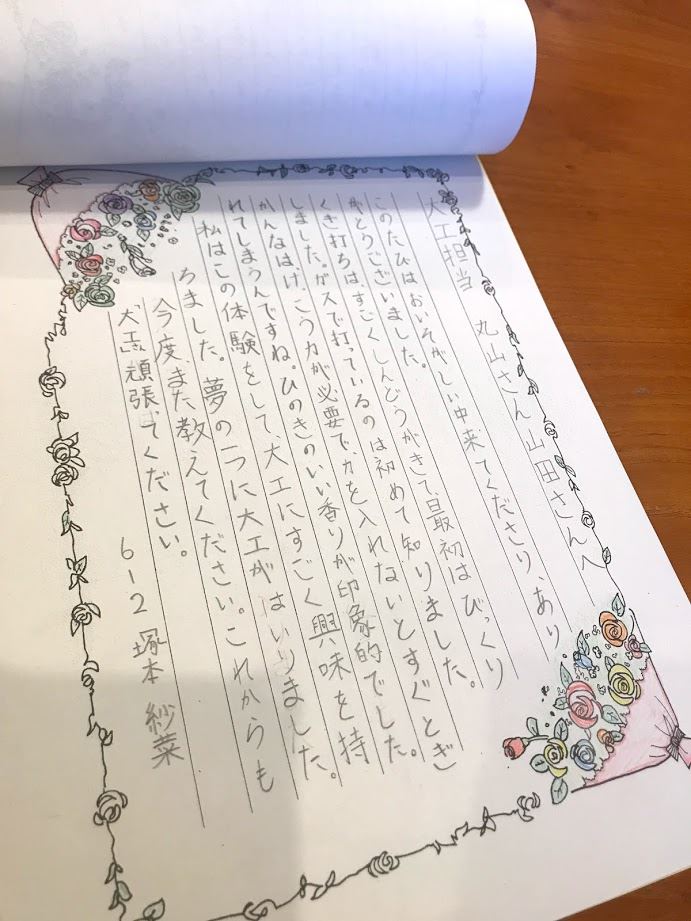 大工担当　丸山さん 山田さんへ
このたびは おいそがしい中来てくださり、あり
がとうございました。
くぎ打ちは、すごくしんどうがきて、最初はびっくり
しました。ガスで打っているのは初めて知りました。
かんなはけっこう力が必要で、力を入れないとすぐとぎ
れてしまうんですね。ひのきのいい香りが印象的でした。
私はこの体験をして、大工にすごく興味を持
ちました。夢の一つに大工がはいりました。
今度、また教えてください。これからも
「大工」さん頑張ってください。
6-2 塚本 紗菜